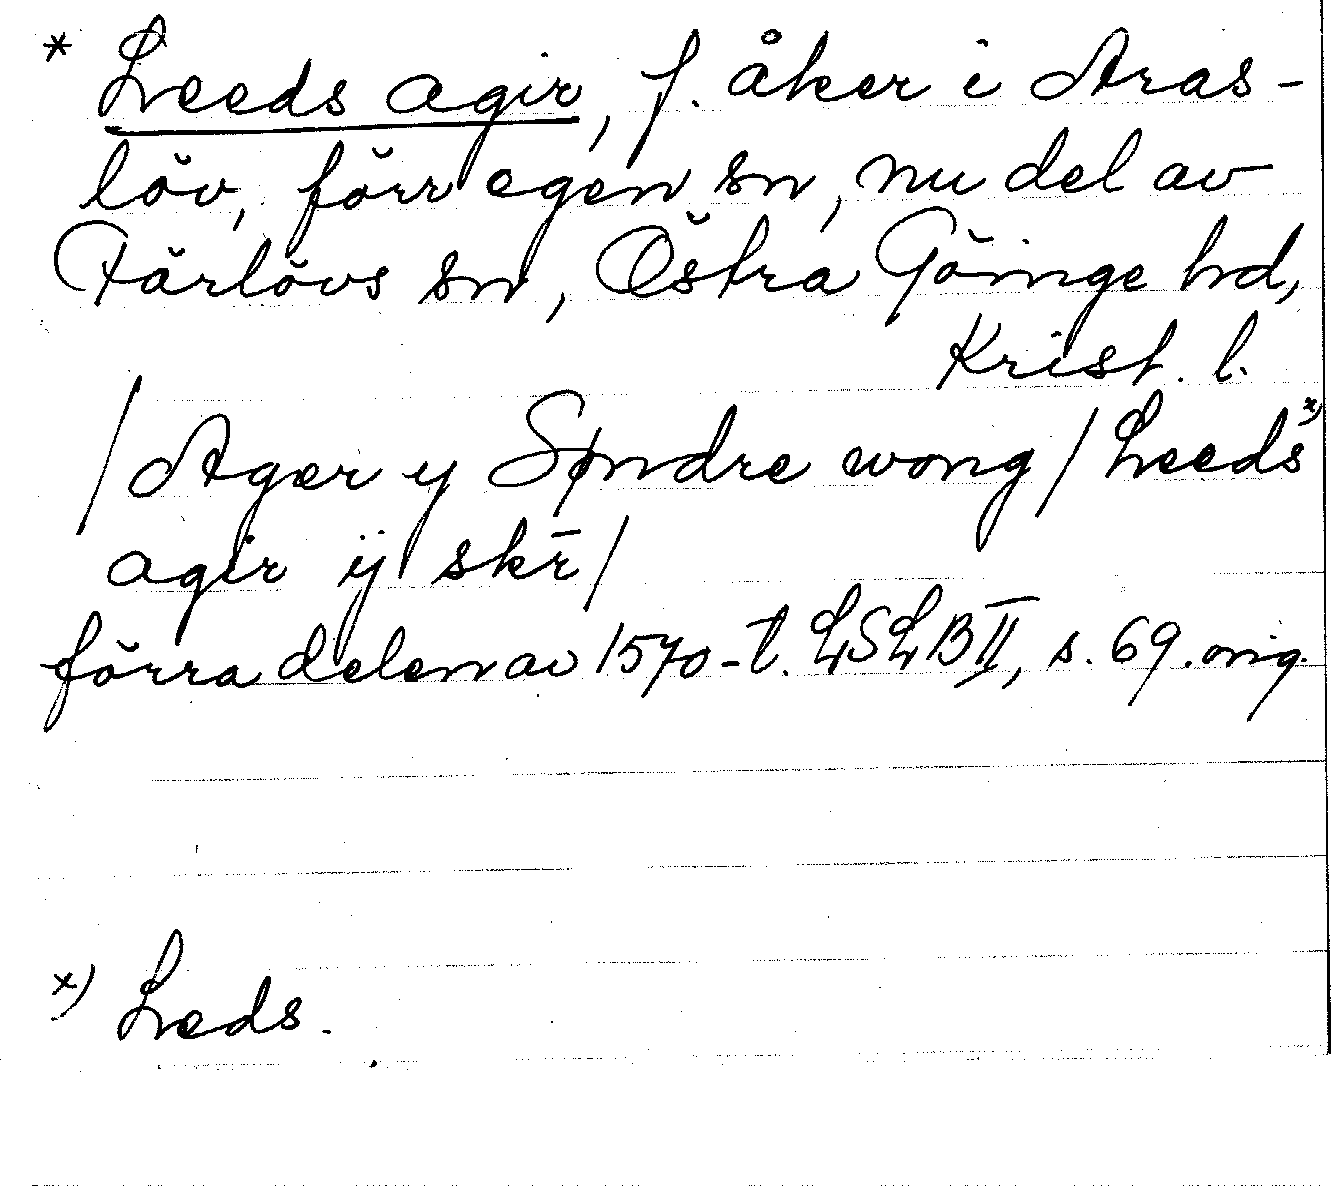 * Leeds agir, f. åker i Aras-
löv, förr egen sn, nu del av
Färlövs sn, Östra Göinge hd,
Krist. l.
/Ager y Søndre wong/Leeds x)
agir ÿ skr̄/
förra delen av 1570-t. LSLB II, s. 69. orig.
x) Leds.